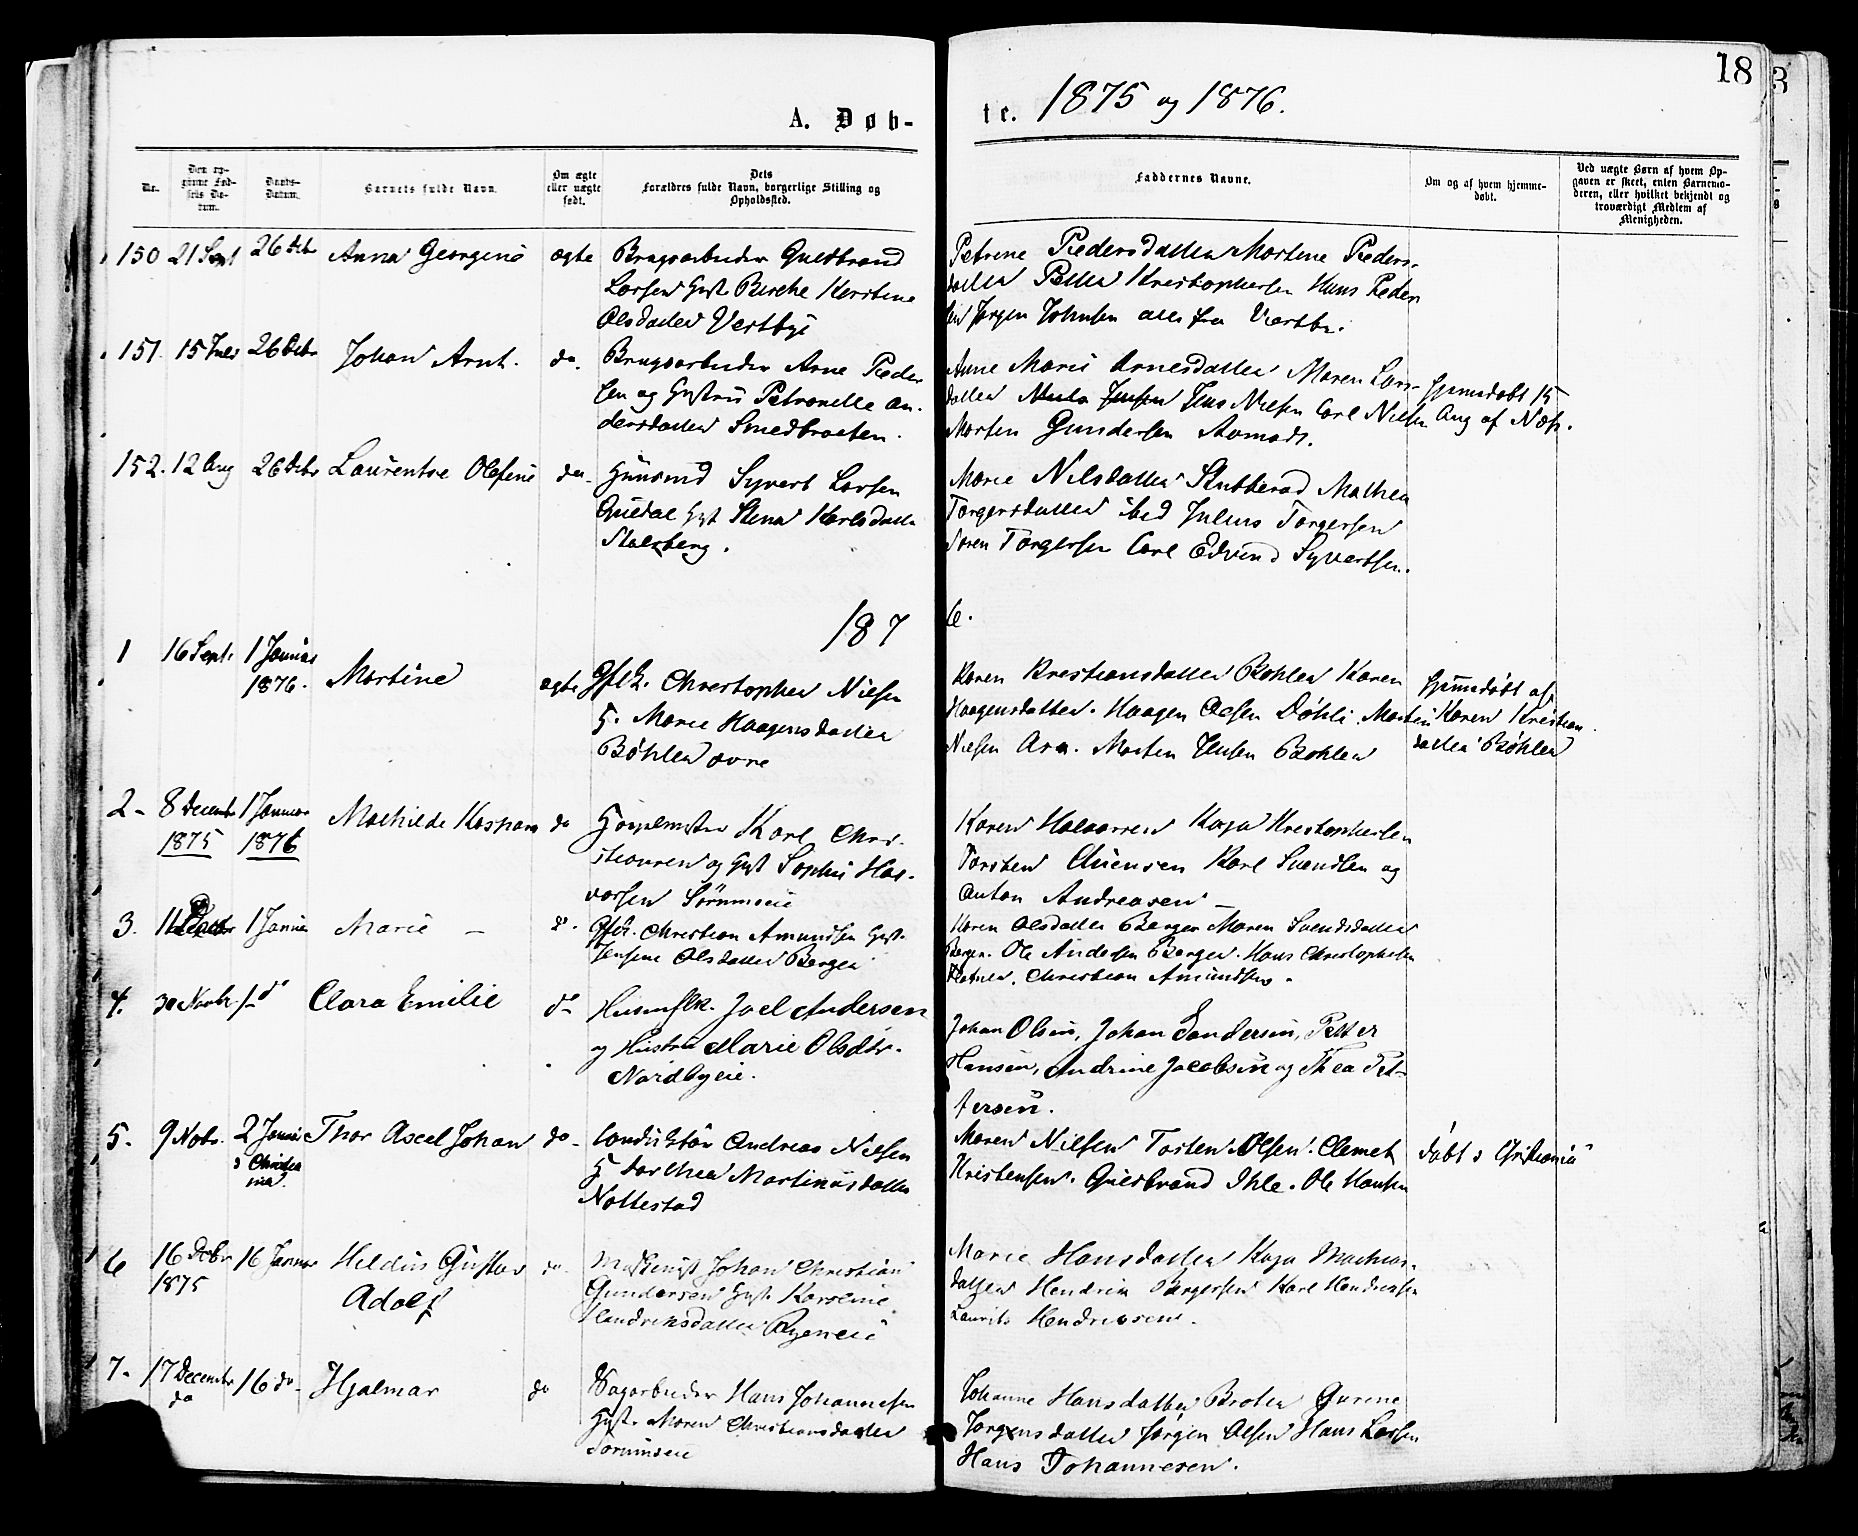 18
A. Døb-
te. 1875 og 1876.
No.
Den op-
givne Fød-
sels Da-
tum.
Daabs-
Datum.
Barnets fulde Navn.
Om ægte
eller uægte
født.
Dets
Forældres fulde Navn, borgerlige Stilling og
Opholdssted.
Faddernes Navne.
Om og af hvem hjemme-
døbt.
Ved uægte Børn af hvem Op-
gaven er skeet, enten Barnemo-
deren, eller hvilket bekjendt og
troværdigt Medlem af
Menigheden.
150 21 Sept 26 Debr Anna Georgine ægte Brugsarbeider Guldbrand
Larsen Hust Birthe Kerstine
Olsdatter Vestbye
Petrine Pedersdatter Martine Peders-
datter Petter Kristophersen Hans Peder
sen Jørgen Johnsen alle fra Vestby.
151. 15 26 Debr Johan Arnt. do. Brugsarbeider Arne Peder
sen og Hustru Petronelle An-
dersdatter Smedbraaten.
Anne Marie Arnesdatter Maren Lars-
datter Jensen Jens Nielsen Carl Nielsen
Morten Gundersen Aamodt.
hjemmedøbt 15
Aug af
152. 12 Aug 26 Debr Laurentse Olefine do. Huusmd Syvert Larsen
Hust Stina Karlsdatter
Stalsberg.
Marie Nilsdatter Stutterud Mathea
Torgersdatter ibid Julius Torgersen
Søren Torgersen Carl Edvind Syvertsen.
1876.
1 16 Sept. 1 Januar
1876. Martine ægte Christopher Nielsen
H. Marie Haagensdatter
Bøhler øvre
Karen Kristiansdatter Bøhler Karen
Haagensdatter. Haagen Olsen Døhli Martin
Nielsen Morten Jensen Bøhler
hjemmedøbt af
Karen Kristian
datter Bøhler
2 - 8 Decembr
1875 1 Januar
1876 Mathilde Kaspara do Karl Chri-
stiansen og Hust Sophie Hal-
vorsen Sørumseie
Karen Halvorsen Kaja Kristophersen
Torsten Karl Svendsen og
Anton Andreasen -
3. 11 1 Januar Marie - do. Christian Amundsen Hust.
Jensine Olsdatter Berger
Karen Olsdatter Berger Maren Svendsdatter
Berger. Ole Andersen Berger. Hans Christophersen
Christian Amundsen.
4. 30 Novbr 1 do Clara Emilie do Huusmfk. Joel Andersen
og Hustru Marie Olsdtr.
Nordbyeie.
Johan Olsen, Johan Gundersen, Petter
Hansen, Andrine Jacobsen og Thea Pet-
tersen.
5. 9 Nobr. 2 Januar
i Christia
nia. Thor Axel Johan do - Conduktør Andreas Nielsen
H Dorthea Martinusdatter
Nottestad
Maren Nielsen Torsten Olsen. Clemet
Kristensen. Guldbrand Ihle. Ole Hansen
døbt i Christiania
6 16 Debr
1875 16 Januar Hildus Gustav
Adolf do - Maskinist Johan Christian
Gundersen Hust. Karoline
Hendriksdatter Ryeneie
Marie Hansdatter Kaja Mathias-
datter Hendrik Børgersen Karl Hendriksen
Laurits Hendriksen.
7. 17 Decembr
do 16 do - Hjalmar do Sagarbeider Hans Johannesen
Hust. Maren Christiansdatter
Sørumseie
Johanne Hansdatter Braten Gurine
Jørgensdatter Jørgen Olsen Hans Larsen
Hans Johannesen.